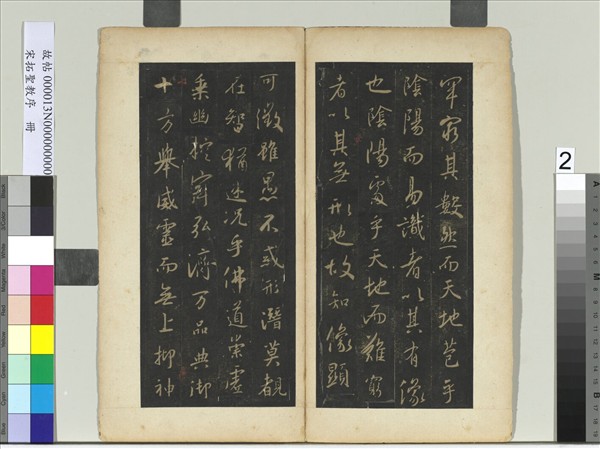 罕窮其數然而天地苞乎
陰陽而易識者以其有像
也陰陽處乎天地而難窮
者以其無形也故知像顯
可徵雖愚不惑形潛莫覩
在智猶迷況乎佛道崇虛
乘幽控寂弘濟万品典御
十方舉威靈而無上抑神
故帖 000013N000000000
宋拓聖教序 冊
Black
3/Color
White
Magenta
Red
Yellow
Green
Cyan
Blue
2
A
M
B